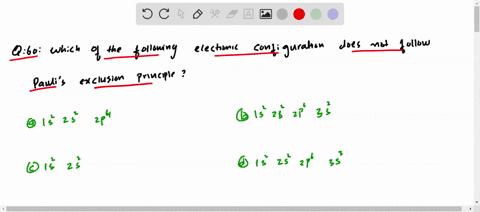 Q:60: which of the following electronic configuration does not follow
Pauli's exclusion principle?
ⓐ 1s² 2s² 2p⁴
ⓑ 1s² 2s² 2p⁶ 3s²
ⓒ 1s² 2s²
ⓓ 1s² 2s² 2p⁶ 3s³